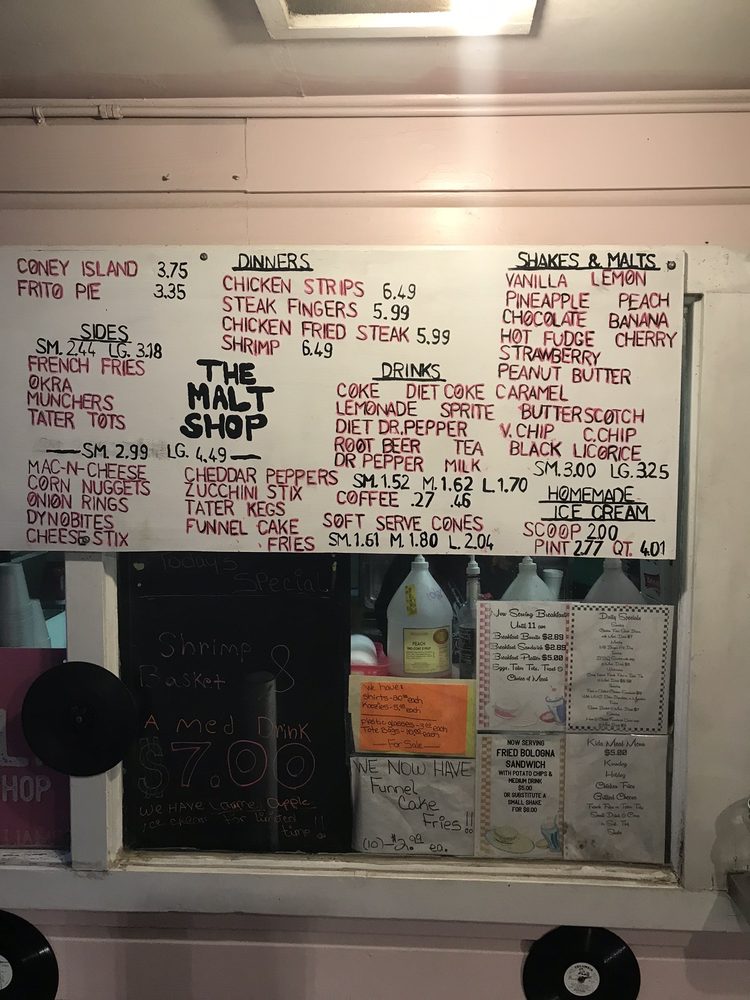 CONEY ISLAND 3.75
FRITO PIE 3.35
SIDES
SM. 2.44 LG. 3.18
FRENCH FRIES
OKRA
MUNCHERS
TATER TOTS
SM. 2.99 LG. 4.49
MAC-N-CHEESE
CORN NUGGETS
ONION RINGS
DYNOBITES
CHEESE STIX
CHEDDAR PEPPERS
ZUCCHINI STIX
TATER KEGS
FUNNEL CAKE
FRIES
THE
MALT
SHOP
DINNERS
CHICKEN STRIPS 6.49
STEAK FINGERS 5.99
CHICKEN FRIED STEAK 5.99
SHRIMP 6.49
DRINKS
COKE DIET COKE
LEMONADE SPRITE
DIET DR.PEPPER
ROOT BEER TEA
DR PEPPER MILK
SM. 1.52 M. 1.62 L 1.70
COFFEE .27 .46
SOFT SERVE CONES
SM. 1.61 M. 1.80 L. 2.04
SHAKES & MALTS
VANILLA LEMON
PINEAPPLE PEACH
CHOCOLATE BANANA
HOT FUDGE CHERRY
STRAWBERRY
PEANUT BUTTER
CARAMEL
BUTTERSCOTCH
V.CHIP C.CHIP
BLACK LICORICE
SM.3.00 LG. 3.25
HOMEMADE
ICE CREAM
SCOOP 2.00
PINT 2.77 QT. 4.01
Todays
Special
Shrimp
Basket 8
A med Drink
$7.00
we HAVE
ice cream For limited
time !!
HOP
PEACH
we have:
shirts-
koozies-
plastic glasses-
Tote Bags-
For Sale
WE NOW HAVE
Funnel
Cake
Fries!!
(10)-$2.99 ea.
Now Serving Breakfast
Until 11 am
Breakfast Burrito $2.89
Breakfast Sandwich $2.89
Breakfast Platter $5.00
Eggs, Tater Tots, Toast &
Choice of Meat
Daily Specials
NOW SERVING
FRIED BOLOGNA
SANDWICH
WITH POTATO CHIPS &
MEDIUM DRINK
$5.00
OR SUBSTITUTE A
SMALL SHAKE
FOR $6.00
Kids Meal Menu
$5.00
Corndog
Hotdog
Chicken Fries
Grilled Cheese
Small Drink &
Shake
COLUMBIA